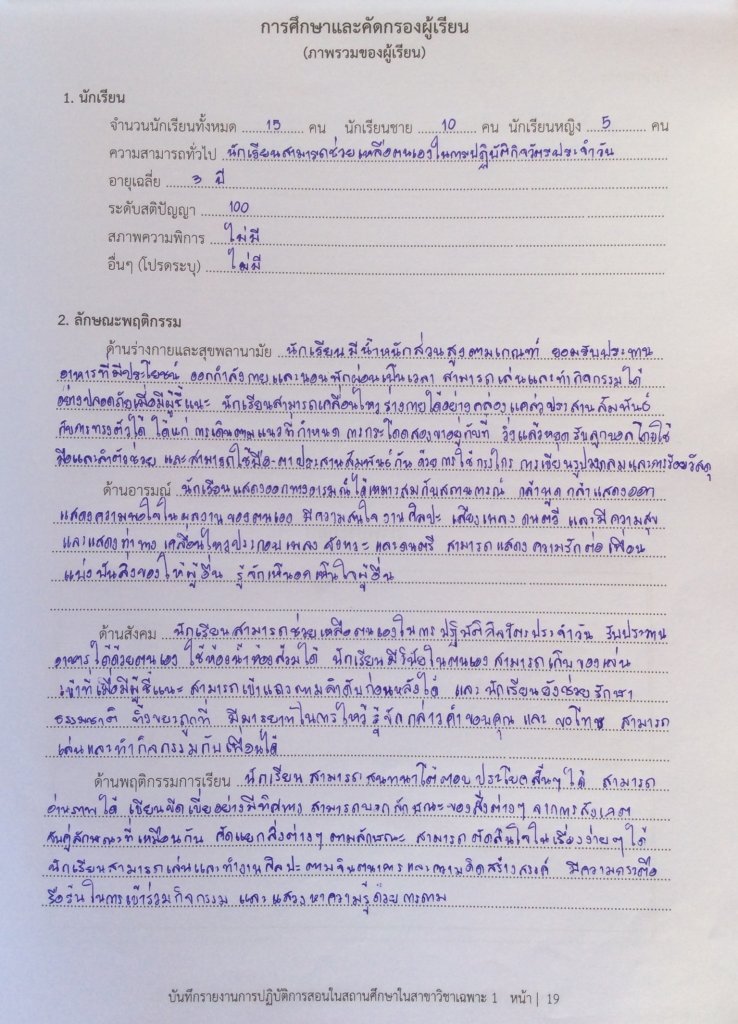 การศึกษาและคัดกรองผู้เรียน
(ภาพรวมของผู้เรียน)
1. นักเรียน
จำนวนนักเรียนทั้งหมด 15 คน นักเรียนชาย 10 คน นักเรียนหญิง 5 คน
ความสามารถทั่วไป นักเรียนสามารถช่วยเหลือตนเองในการปฏิบัติกิจวัตรประจำวัน
อายุเฉลี่ย 3 ปี
ระดับสติปัญญา 100
สภาพความพิการ ไม่มี
อื่นๆ (โปรดระบุ) ไม่มี
2. ลักษณะพฤติกรรม
ด้านร่างกายและสุขพลานามัย นักเรียนมีน้ำหนักส่วนสูงตามเกณฑ์ ยอมรับประทาน
อาหารที่มีประโยชน์ ออกกำลังกาย และนอนพักผ่อนเป็นเวลา สามารถเล่นและทำกิจกรรมได้
อย่างปลอดภัยเมื่อมีผู้ชี้แนะ นักเรียนสามารถเคลื่อนไหวร่างกายได้อย่างคล่องแคล่วประสานสัมพันธ์
กับการทรงตัวได้ ได้แก่ การเดินตามแนวที่กำหนด การกระโดดสองขาอยู่กับที่ วิ่งแล้วหยุด รับลูกบอลโดยใช้
มือและลำตัวช่วย และสามารถใช้มือ-ตาประสานสัมพันธ์กัน ด้วยการใช้กรรไกร การเขียนรูปวงกลมและการร้อยวัสดุ
ด้านอารมณ์ นักเรียนแสดงออกทางอารมณ์ได้เหมาะสมกับสถานการณ์ กล้าพูด กล้าแสดงออก
แสดงความพอใจในผลงานของตนเอง มีความสนใจงานศิลปะ เสียงเพลง ดนตรี และมีความสุข
และแสดงท่าทาง เคลื่อนไหวประกอบเพลง จังหวะ และดนตรี สามารถแสดงความรักต่อเพื่อน
แบ่งปันสิ่งของให้ผู้อื่น รู้จักเห็นอกเห็นใจผู้อื่น
ด้านสังคม นักเรียนสามารถช่วยเหลือตนเองในการปฏิบัติกิจวัตรประจำวัน รับประทาน
อาหารได้ด้วยตนเอง ใช้ห้องน้ำห้องส้วมได้ นักเรียนมีวินัยในตนเอง สามารถเก็บของเล่น
เข้าที่เมื่อมีผู้ชี้แนะ สามารถเข้าแถวตามลำดับก่อนหลังได้ และนักเรียนยังช่วยรักษา
ธรรมชาติ ทิ้งขยะถูกที่ มีมารยาทในการไหว้ รู้จักกล่าวคำขอบคุณ และ ขอโทษ สามารถ
เล่นและทำกิจกรรมกับเพื่อนได้
ด้านพฤติกรรมการเรียน นักเรียนสามารถสนทนาโต้ตอบประโยคสั้นๆ ได้ สามารถ
อ่านภาพได้ เขียนขีดเขี่ยอย่างมีทิศทาง สามารถบอกลักษณะของสิ่งต่างๆ จากการสังเกต
จับคู่ลักษณะที่เหมือนกัน คัดแยกสิ่งต่างๆ ตามลักษณะ สามารถตัดสินใจในเรื่องง่ายๆ ได้
นักเรียนสามารถเล่นและทำงานศิลปะตามจินตนาการและความคิดสร้างสรรค์ มีความกระตือ
รือร้นในการเข้าร่วมกิจกรรม และแสวงหาความรู้ด้วยการถาม
บันทึกรายงานการปฏิบัติการสอนในสถานศึกษาในสาขาวิชาเฉพาะ 1 หน้า | 19